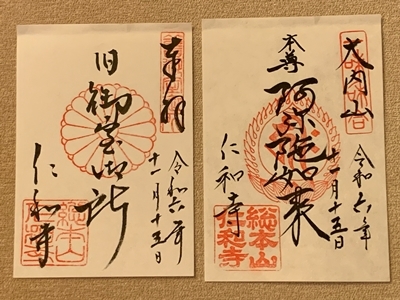 奉拝
令和六年
十一月十五日
旧御室御所
仁和寺
大内山
令和六年
十一月十五日
本尊
阿弥陀如来
仁和寺
総本山
仁和寺